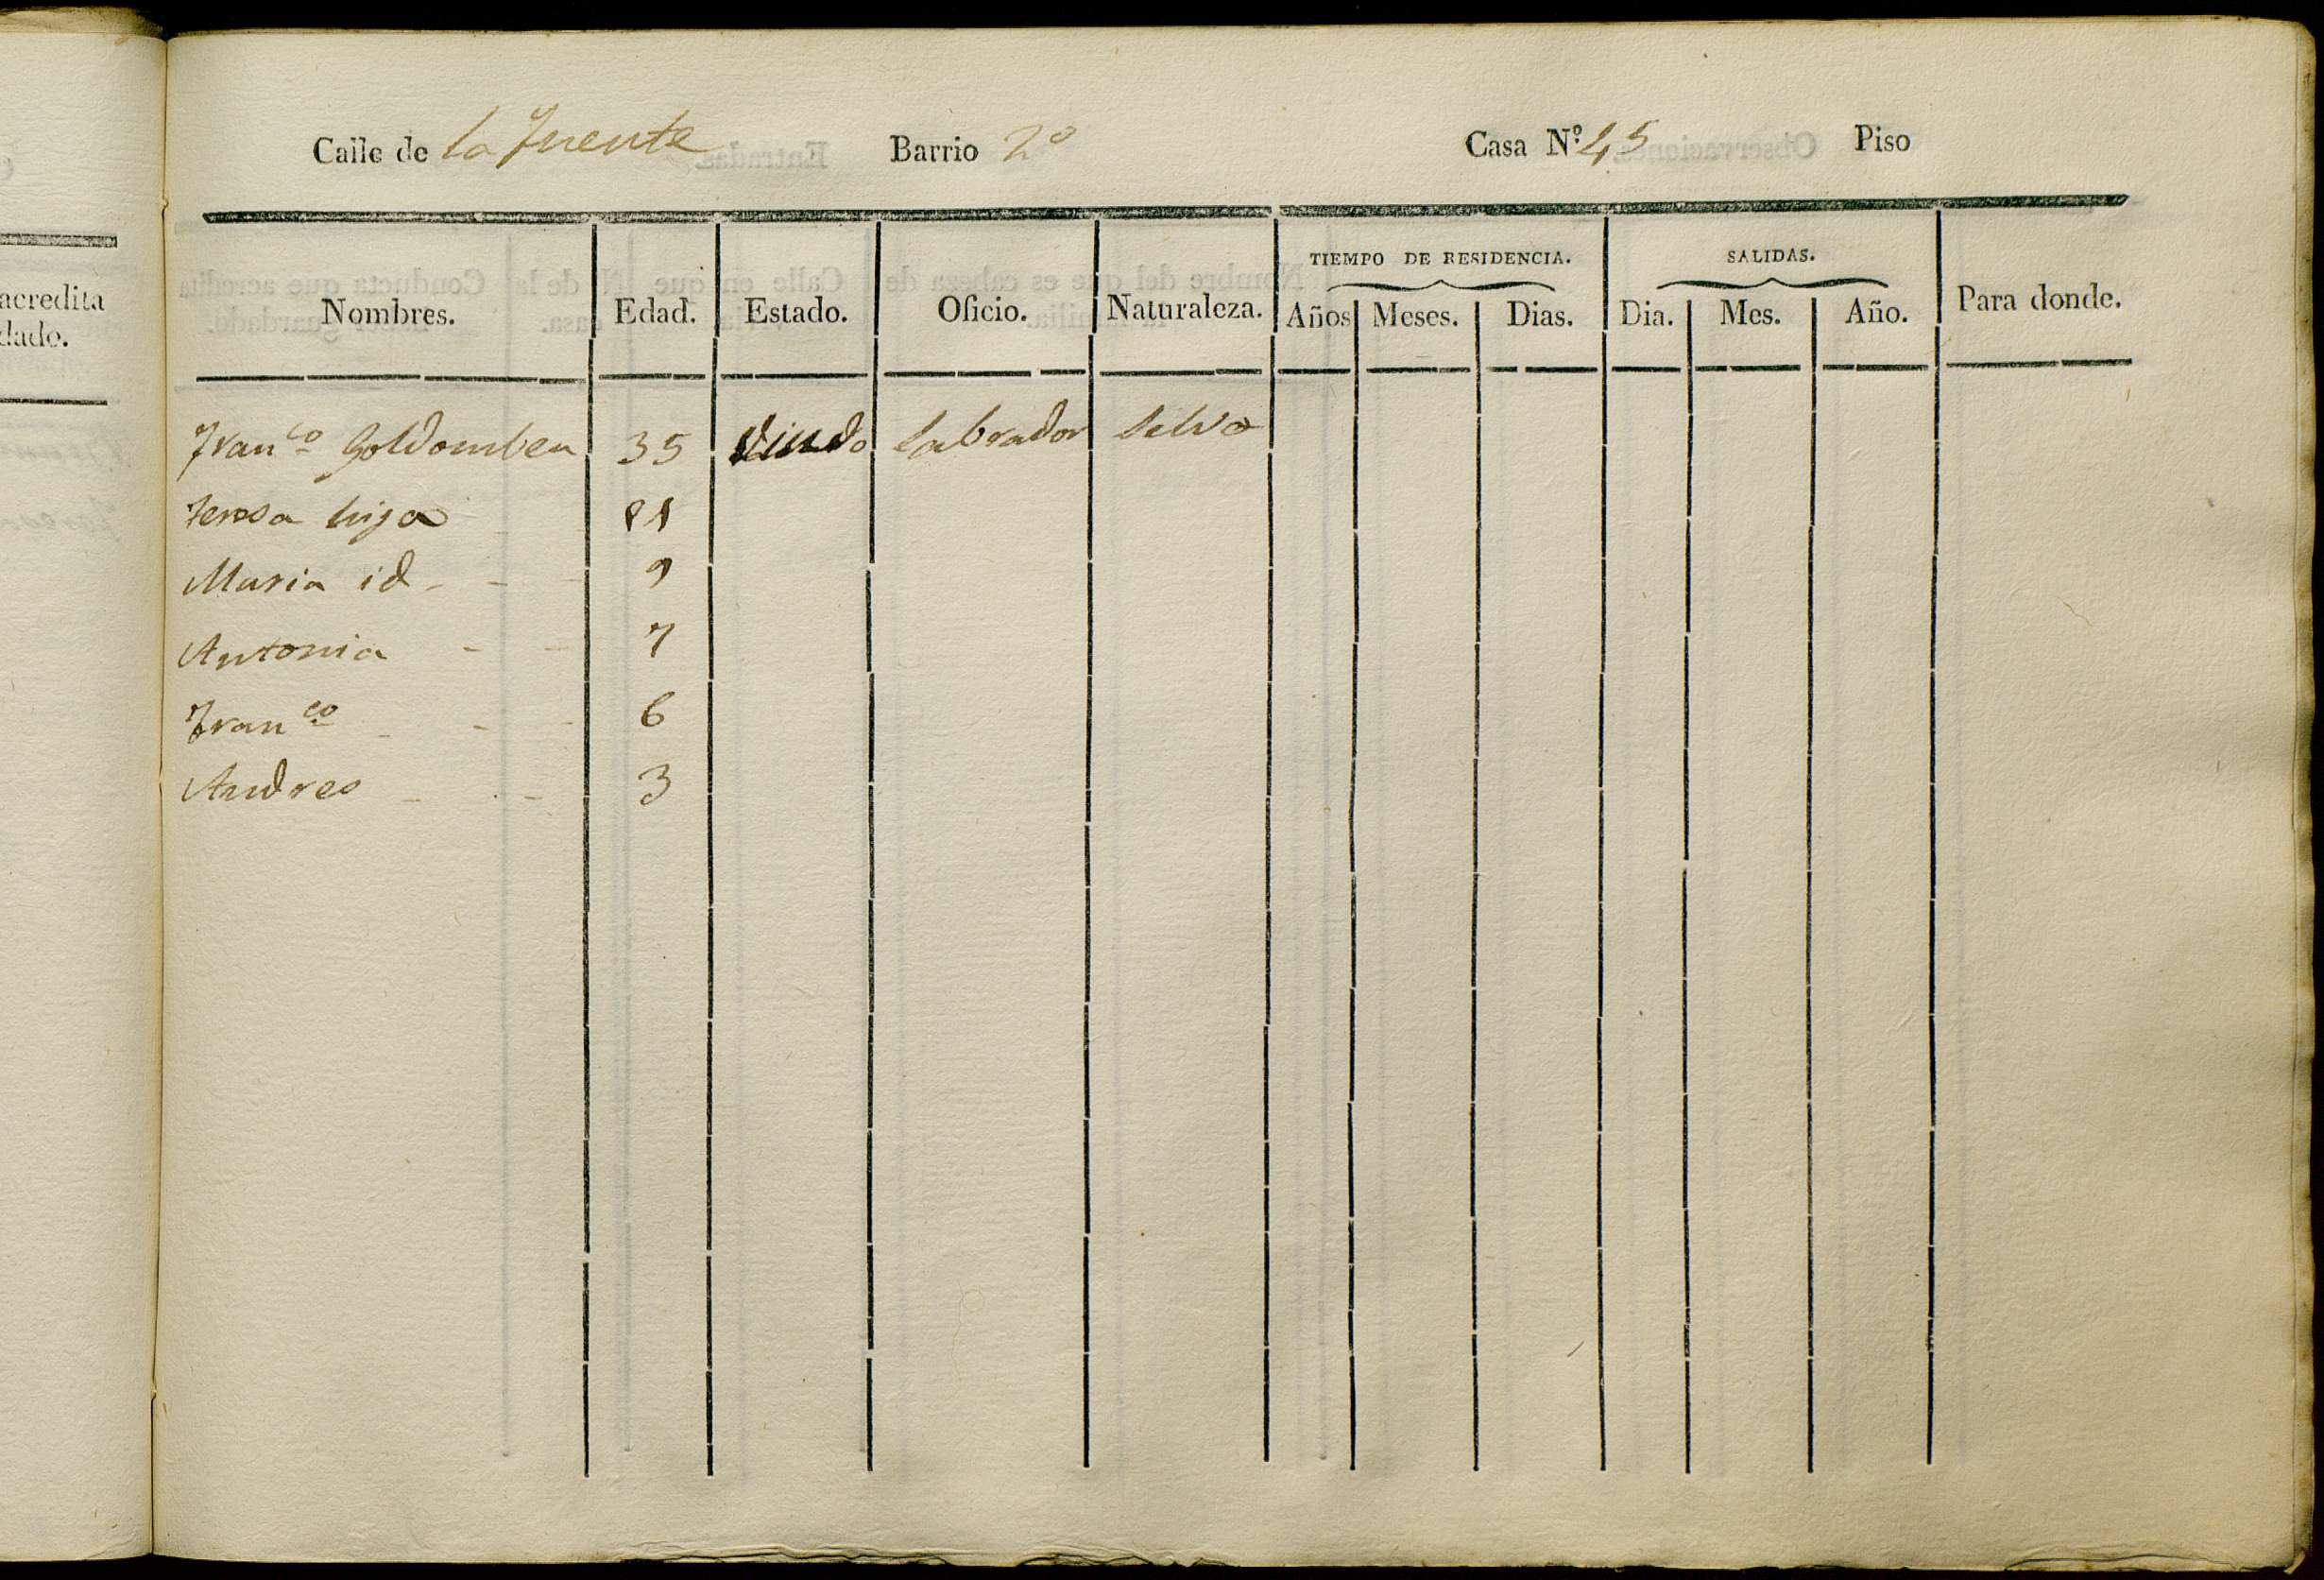 acredita
dado.
Calle de la Fuente Barrio 2º Casa Nº 45 Piso
TIEMPO DE RESIDENCIA. SALIDAS.
Nombres. Edad. Estado. Oficio. Naturaleza. Años Meses. Dias. Dia. Mes. Año. Para donde.
Franco Goldomben 35 Viudo labrador Selva
Teresa hija 11
Maria id 9
Antonia 7
Franco 6
Andres 3